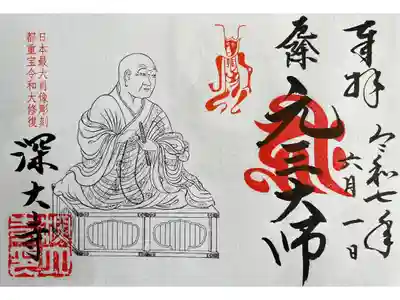 奉拝
令和七年
六月一日
元三大師
日本最大肖像彫刻
都重宝令和大修復
深大寺